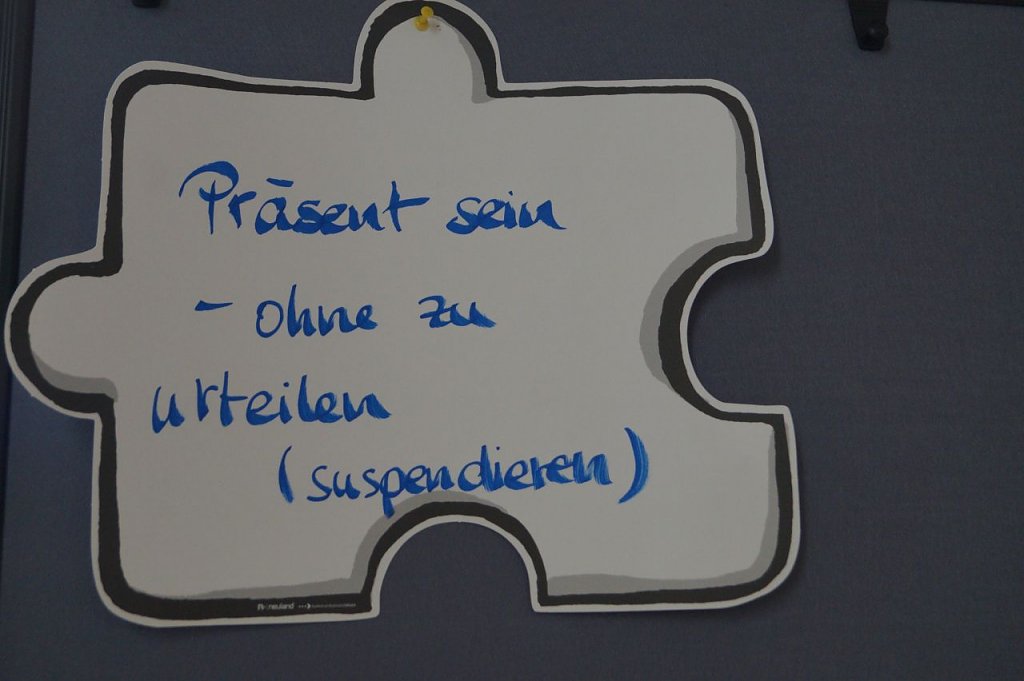 Präsent sein
- ohne zu
urteilen
(suspendieren)
neuland